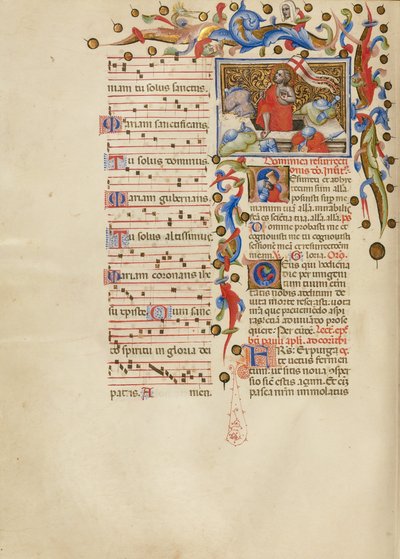 niam tu solus sanctus
Mariam sanctificans
Tu solus dominus
Mariam gubernans
Tu solus altissimus
Mariam coronans ihe
su xpiste Cum sanc
to spiritu in gloria dei
patris. A men.
Dominica resurrecti
onis
Resurrexi et adhuc
tecum sum alla
posuisti sup me
manum tuam alla mirabilis
scientia tua alla
Domine probasti me et
cognovisti me tu cognovisti
sessionem meam et resurrectionem
meam. Gloria.
Deus qui hodierna
die per unigeni
tum tuum eterni
tatis nobis aditum de
victa morte reserasti vota
nostra que preveniendo aspi
ras etiam adiuvando prose
quere. Per eundem.
pauli apli. ad corinthi
FRS. Expurga
te vetus fermen
tum ut sitis nova consper
sio sicut estis azimi. Et enim
pasca nostrum immolatus